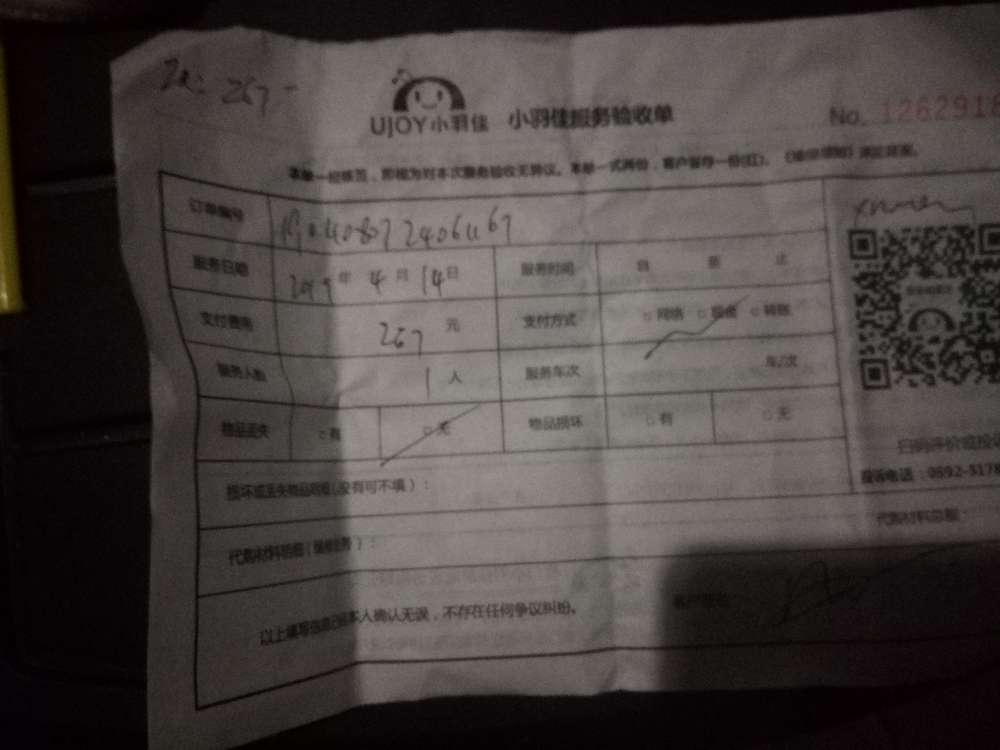 267-
UJOY小羽佳 小羽佳服务验收单
No. 1262918
本单一经签签，即视为对本次服务验收无异议。本单一式两份，客户留存一份(红)，
订单编号
服务日期 2019年 4月 14日 服务时间 自 至 止
支付费用 267 元 支付方式 □网络 □现金 □转账
服务人数 1 人 服务车次 车/次
物品丢失 □有 □无 物品损坏 □有 □无
扫码评价或投
损坏或丢失物品明细(没有可不填)：
投诉电话：0592-5178
代购材料总额：
代购材料明细
以上填写信息已经本人确认无误，不存在任何争议纠纷。
客户签名：